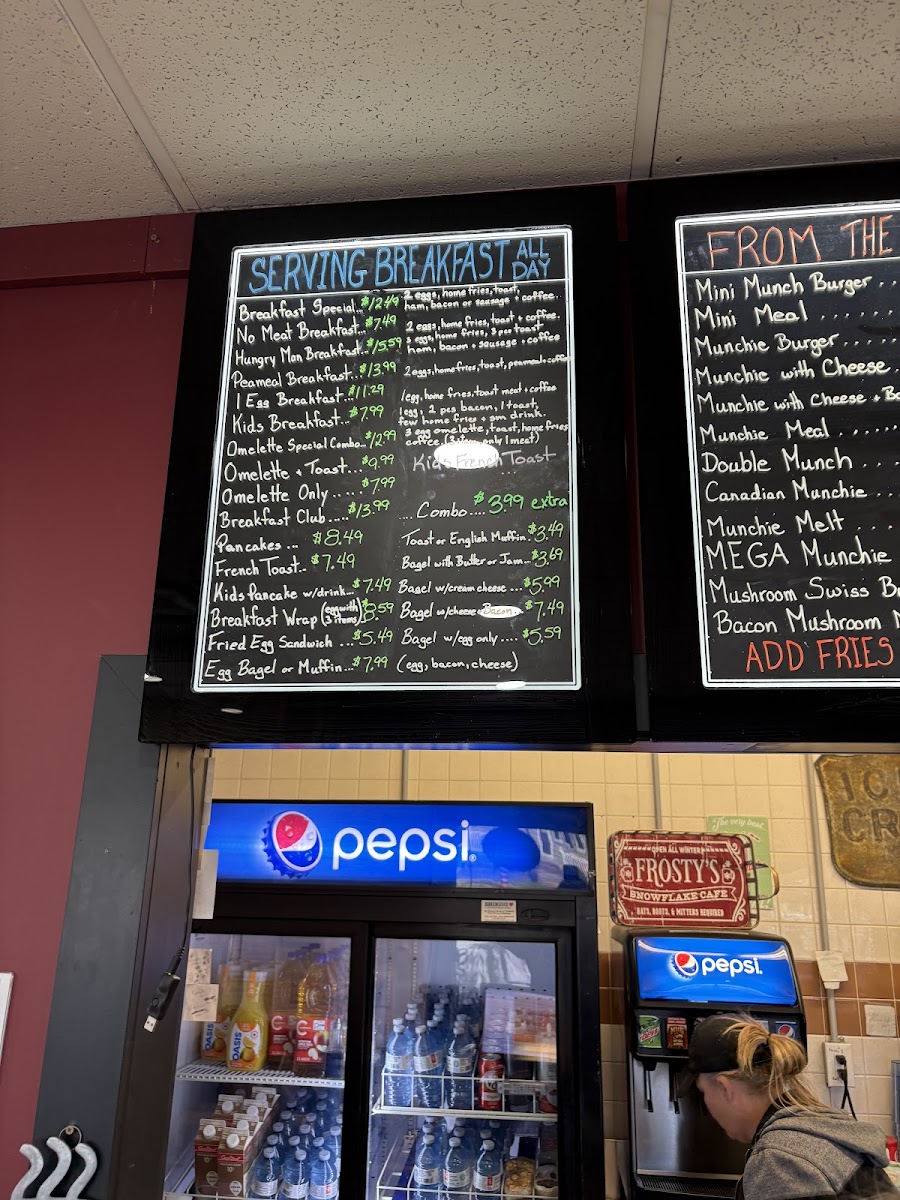 SERVING BREAKFAST ALL DAY
Breakfast Special.. $12.49 2 eggs, home fries, toast, ham, bacon or sausage + coffee.
No Meat Breakfast.. $7.49 2 eggs, home fries, toast + coffee.
Hungry Man Breakfast.. $15.59 3 eggs, home fries, 3 pcs toast ham, bacon + sausage + coffee
Peameal Breakfast... $13.99 2 eggs, home fries, toast, peameal + coffee
1 Egg Breakfast... $11.29 1 egg, home fries, toast meat + coffee
Kids Breakfast... $7.99 1 egg, 2 pcs bacon, 1 toast, few home fries + sm drink.
Omelette Special Combo.. $12.99 3 egg omelette, toast, home fries coffee, (3 items only 1 meat)
Omelette + Toast... $9.99 Kids French Toast
Omelette Only ..... $7.99
Breakfast Club..... $13.99 .... Combo.... $3.99 extra
Pancakes ... $8.49 Toast or English Muffin.. $3.49
French Toast.. $7.49 Bagel with Butter or Jam... $3.69
Kids Pancake w/drink.. $7.49 Bagel w/cream cheese ... $5.99
Breakfast Wrap (egg with 3 items) $8.59 Bagel w/cheese or Bacon. $7.49
Fried Egg Sandwich ... $5.49 Bagel w/egg only .... $5.59
Egg Bagel or Muffin... $7.99 (egg, bacon, cheese)
FROM THE
Mini Munch Burger ..
Mini Meal ......
Munchie Burger .....
Munchie with Cheese .
Munchie with Cheese +
Munchie Meal .....
Double Munch ...
Canadian Munchie ...
Munchie Melt ....
MEGA Munchie
Mushroom Swiss
Bacon Mushroom
ADD FRIES
pepsi
"The very best
OPEN ALL WINTER
FROSTY'S
SNOWFLAKE CAFE
HATS, BOOTS, & MITTENS REQUIRED
pepsi
OASIS
OASIS